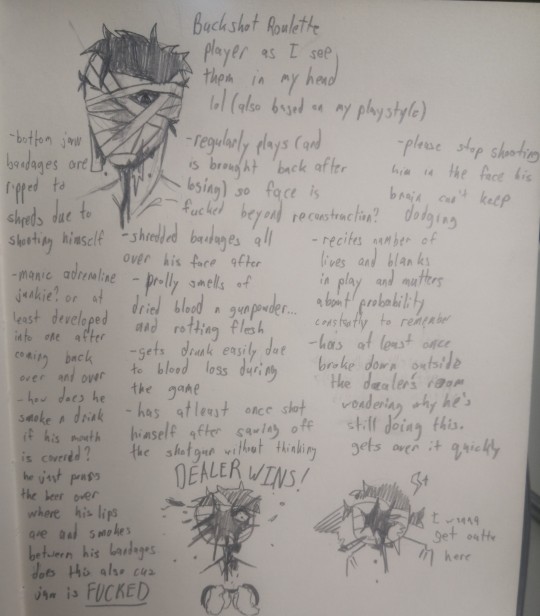 Buckshot Roulette
player as I see
them in my head
lol (also based on my playstyle)
-bottom jaw
bandages are
ripped to
shreds due to
shooting himself
-manic adrenaline
junkie? or at
least developed
into one after
coming back
over and over
-how does he
smoke n drink
if his mouth
is covered?
he just pours
the beer over
where his lips
are and smokes
between his bandages
does this also cuz
jaw is FUCKED
-regularly plays (and
is brought back after
losing) so face is
fucked beyond reconstruction?
-shredded bandages all
over his face after
-prolly smells of
dried blood n gunpowder...
and rotting flesh
-gets drunk easily due
to blood loss during
the game
-has atleast once shot
himself after sawing off
the shotgun without thinking
-please stop shooting
him in the face his
brain can't keep
dodging
-recites number of
lives and blanks
in play and mutters
about probability
constantly to remember
-has at least once
broke down outside
the dealer's room
wondering why he's
still doing this.
gets over it quickly
DEALER WINS!
I wanna
get outta
here